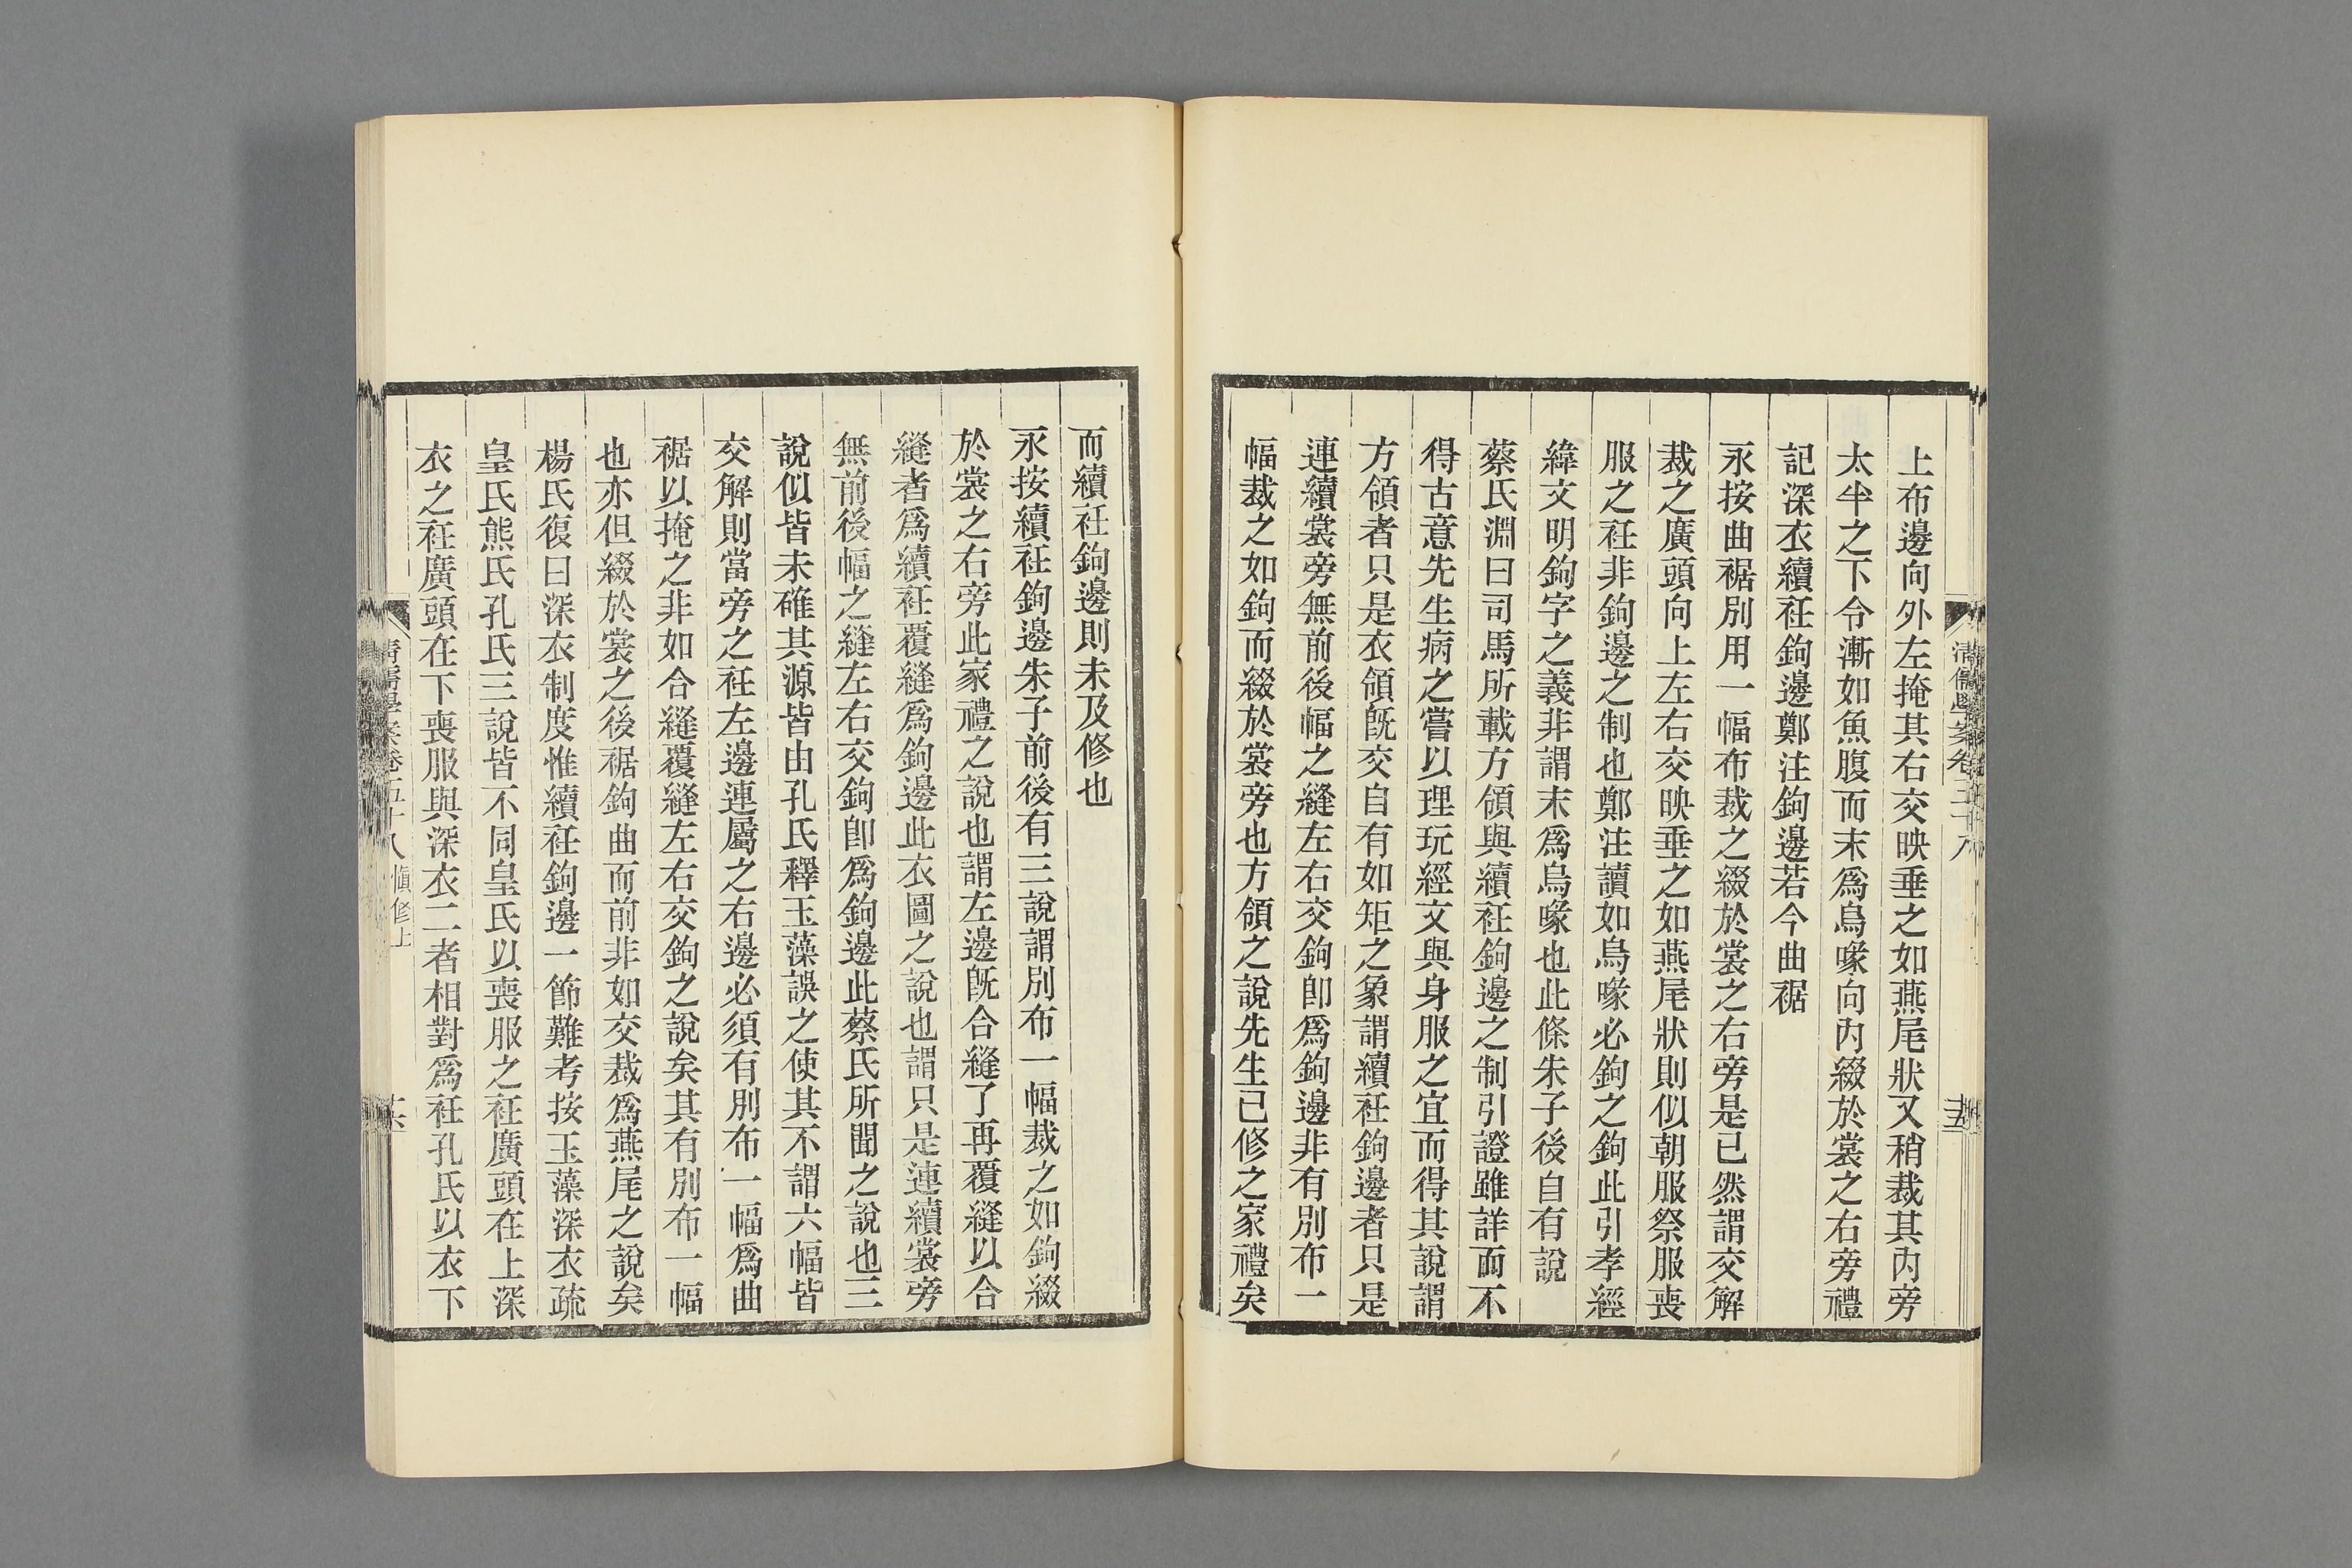 上布邊向外左掩其右交映垂之如燕尾狀又稍裁其內旁
太半之下令漸如魚腹而末爲烏喙向內綴於裳之右旁禮
記深衣續衽鉤邊鄭注鉤邊若今曲裾
永按曲裾別用一幅布裁之綴於裳之右旁是已然謂交解
裁之廣頭向上左右交映垂之如燕尾狀則似朝服祭服喪
服之衽非鉤邊之制也鄭注讀如烏喙必鉤之鉤此引孝經
緯文明鉤字之義非謂末爲烏喙也此條朱子後自有說
蔡氏淵曰司馬所載方領與續衽鉤邊之制引證雖詳而不
得古意先生病之嘗以理玩經文與身服之宜而得其說謂
方領者只是衣領旣交自有如矩之象謂續衽鉤邊者只是
連續裳旁無前後幅之縫左右交鉤卽爲鉤邊非有別布一
幅裁之如鉤而綴於裳旁也方領之說先生已修之家禮矣
而續衽鉤邊則未及修也
永按續衽鉤邊朱子前後有三說謂別布一幅裁之如鉤綴
於裳之右旁此家禮之說也謂左邊旣合縫了再覆縫以合
縫者爲續衽覆縫爲鉤邊此衣圖之說也謂只是連續裳旁
無前後幅之縫左右交鉤卽爲鉤邊此蔡氏所聞之說也三
說似皆未確其源皆由孔氏釋玉藻誤之使其不謂六幅皆
交解則當旁之衽左邊連屬之右邊必須有別布一幅爲曲
裾以掩之非如合縫覆縫左右交鉤之說矣其有別布一幅
也亦但綴於裳之後裾鉤曲而前非如交裁爲燕尾之說矣
楊氏復曰深衣制度惟續衽鉤邊一節難考按玉藻深衣疏
皇氏熊氏孔氏三說皆不同皇氏以喪服之衽廣頭在上深
衣之衽廣頭在下喪服與深衣二者相對爲衽孔氏以衣下